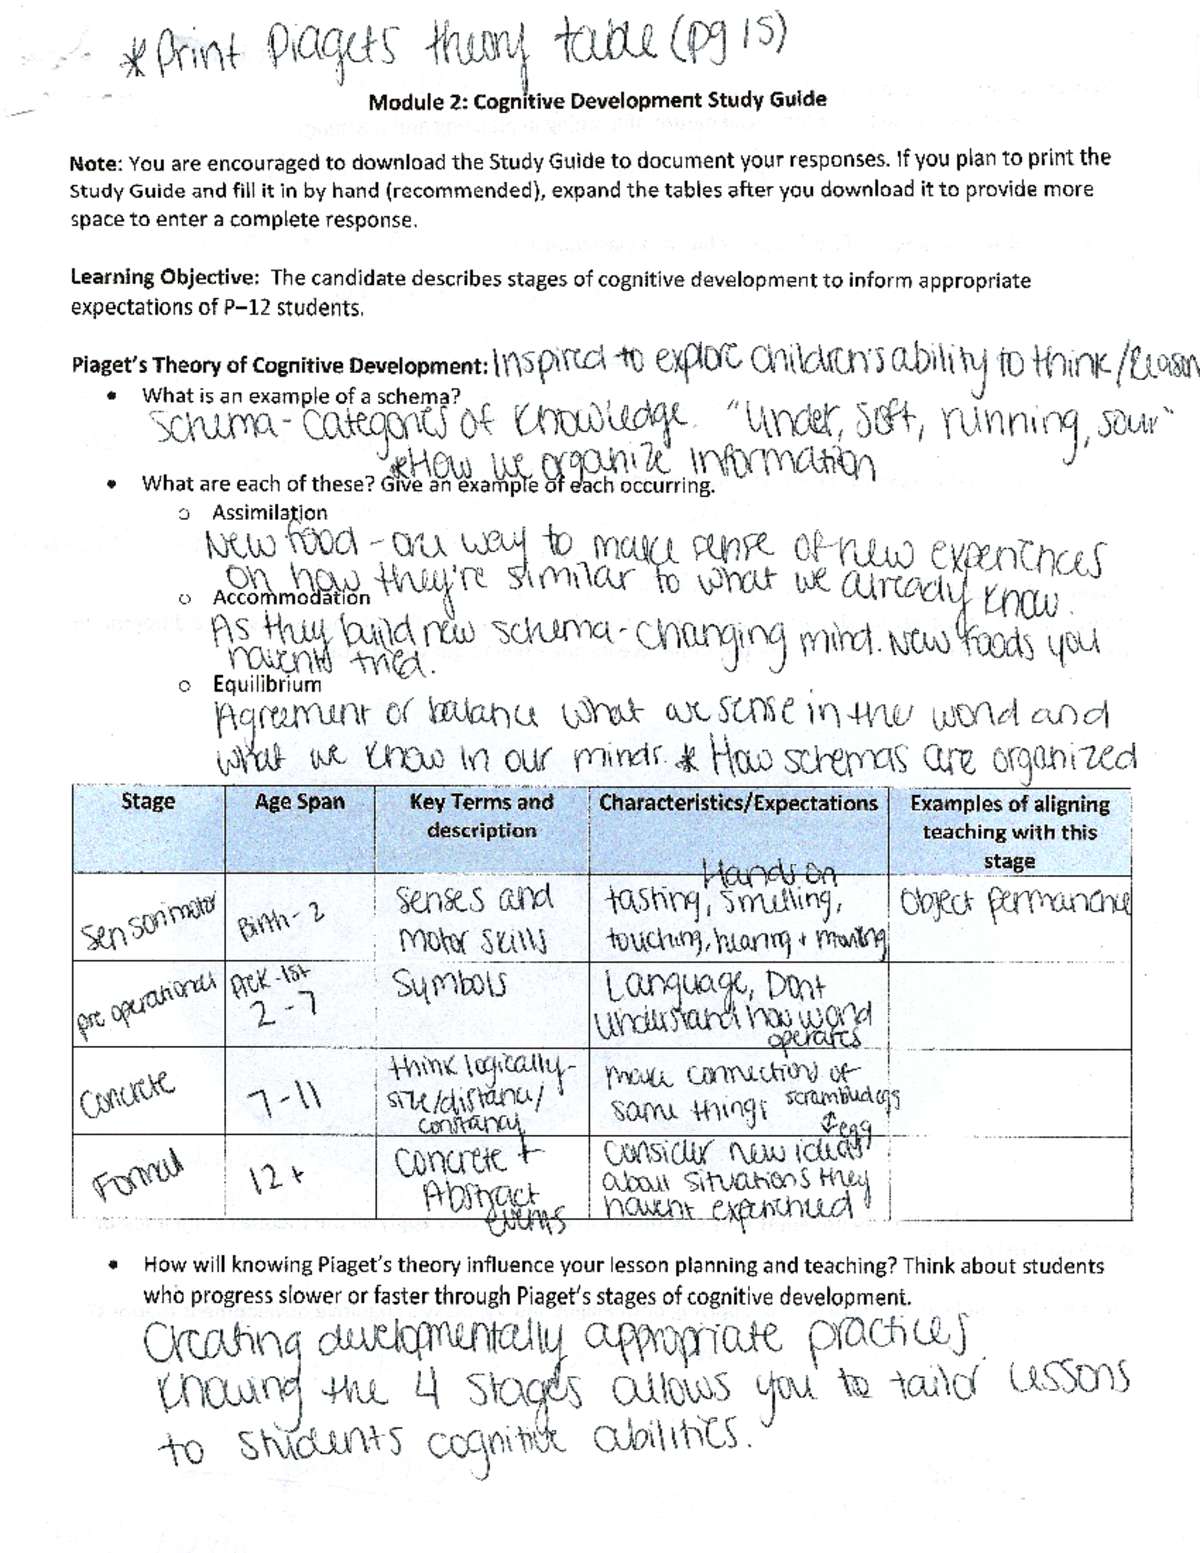 *Print Piagets theory table (pg 15)
Module 2: Cognitive Development Study Guide
Note: You are encouraged to download the Study Guide to document your responses. If you plan to print the
Study Guide and fill it in by hand (recommended), expand the tables after you download it to provide more
space to enter a complete response.
Learning Objective: The candidate describes stages of cognitive development to inform appropriate
expectations of P–12 students.
Piaget's Theory of Cognitive Development: Inspired to explore children's ability to think/Reason
• What is an example of a schema?
Schema - categories of knowledge. "Under, soft, running, sour"
*How we organize information
• What are each of these? Give an example of each occurring.
o Assimilation
New food - our way to make sense of new experiences
on how they're similar to what we already know.
o Accommodation
As they build new schema - changing mind. New foods you
havent tried.
o Equilibrium
Agreement or balance what we sense in the world and
what we know in our minds. * How schemas are organized
Stage Age Span Key Terms and description Characteristics/Expectations Examples of aligning teaching with this stage
Sensorimotor
Birth - 2
Senses and
motor skills
Hands on
tasting, smelling,
touching, hearing + moving
Object permanence
pre operational
PreK-1st
2-7
Symbols
Language, Dont
understand how world
operates
Concrete
7-11
think logically-
size/distance/
constancy
make connection of
same things scrambled eggs
↕ egg
Formal
12+
Concrete +
Abstract
events
Consider new ideas
about situations they
havent experienced
• How will knowing Piaget's theory influence your lesson planning and teaching? Think about students
who progress slower or faster through Piaget's stages of cognitive development.
Creating developmentally appropriate practices.
Knowing the 4 stages allows you to tailor lessons
to students cognitive abilities.